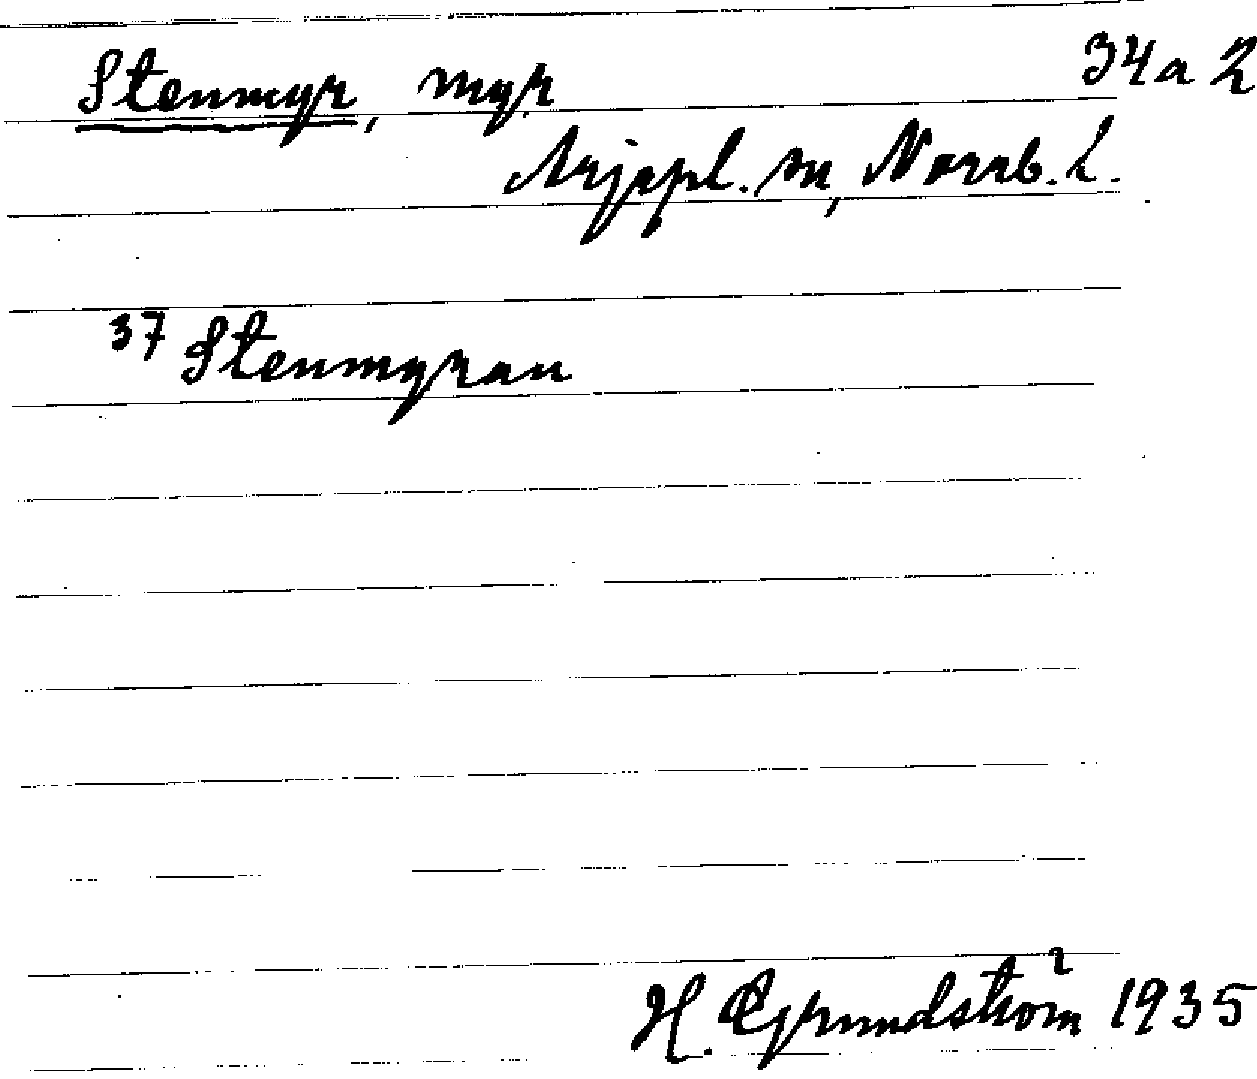 Stenmyr, myr 34a 2
Arjepl. sn, Norrb. L.
37 Stenmyran
H. Grundström 1935